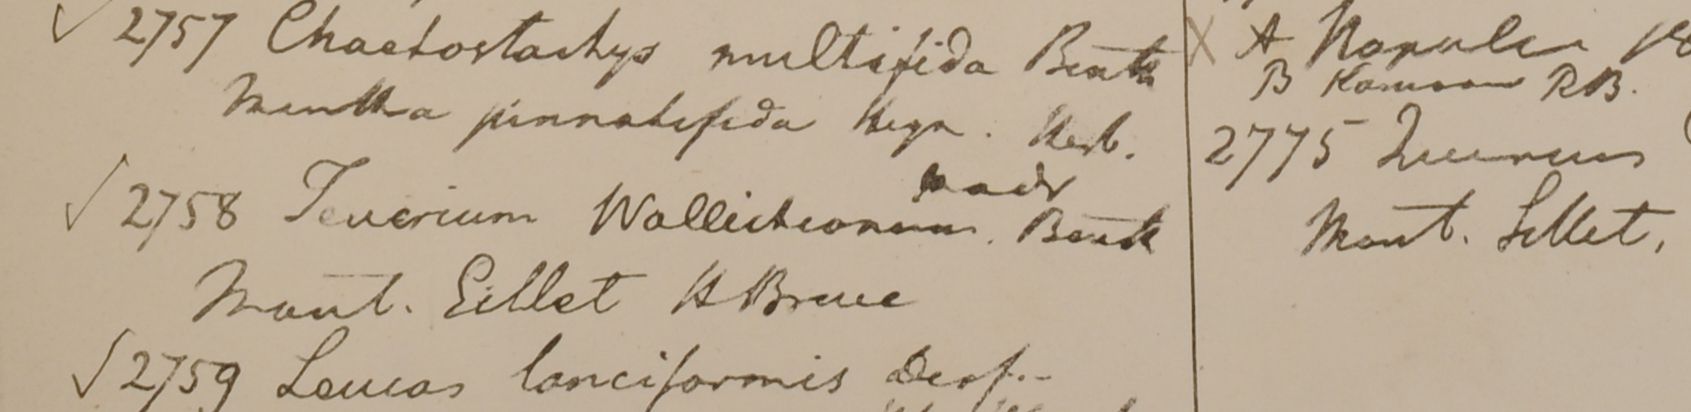 2757 Chaetostachys multifida Benth
Mentha pinnatifida Heyn. Herb.
2758 Teucrium Wallichianum. Benth
Mont. Sillet HBruce
2759 Leucas lanciformis Desf.
X A Napuler
B Kamoon RB.
2775
Mont. Sillet.